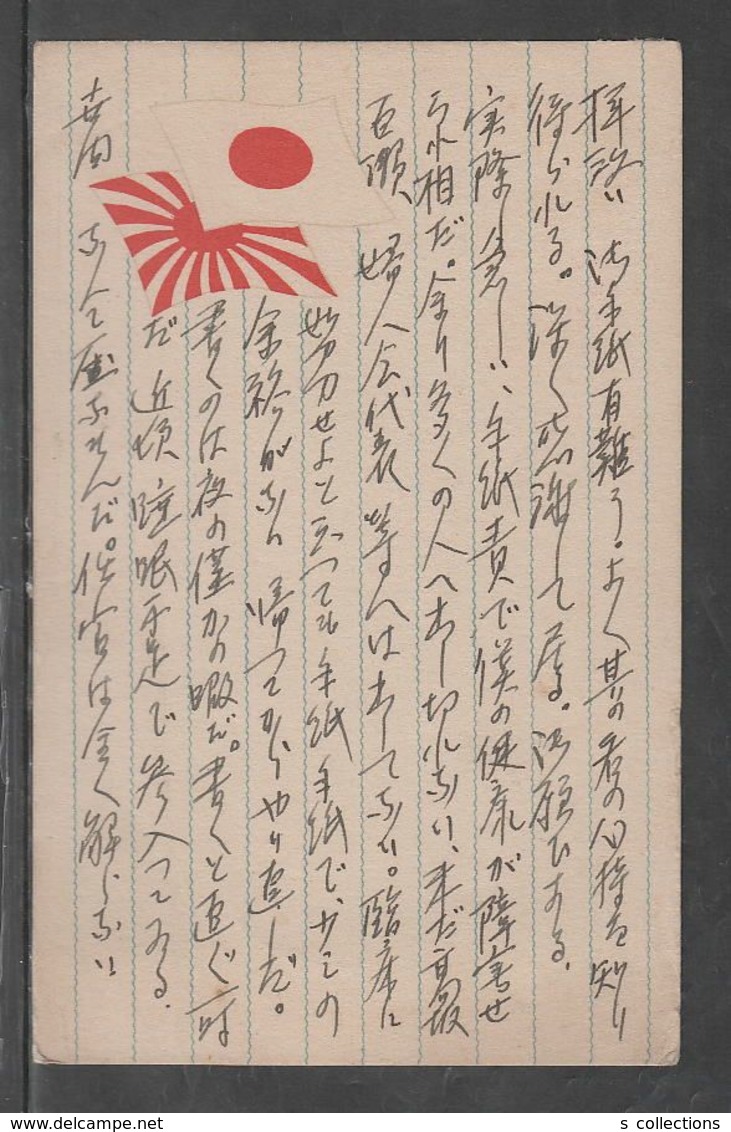 拝啓 御手紙有難う。よく其の者の心持を知り
得られる。深く感謝して居る。御願ひする。
実際忙しい、手紙責で僕の健康が障害せ
られ相だ。余り多くの人へ出し切れない、未だ高級
百瀬、婦人会代表等へは出してない。臨床に
努力せよと云つても手紙手紙で、少しの
余裕がない 帰つてからやり直しだ。
書くのは夜の僅かの暇だ。書くと直ぐ一時
だ 近頃睡眠不足で参入つてゐる。
なんだ。は全く解らない
s collections